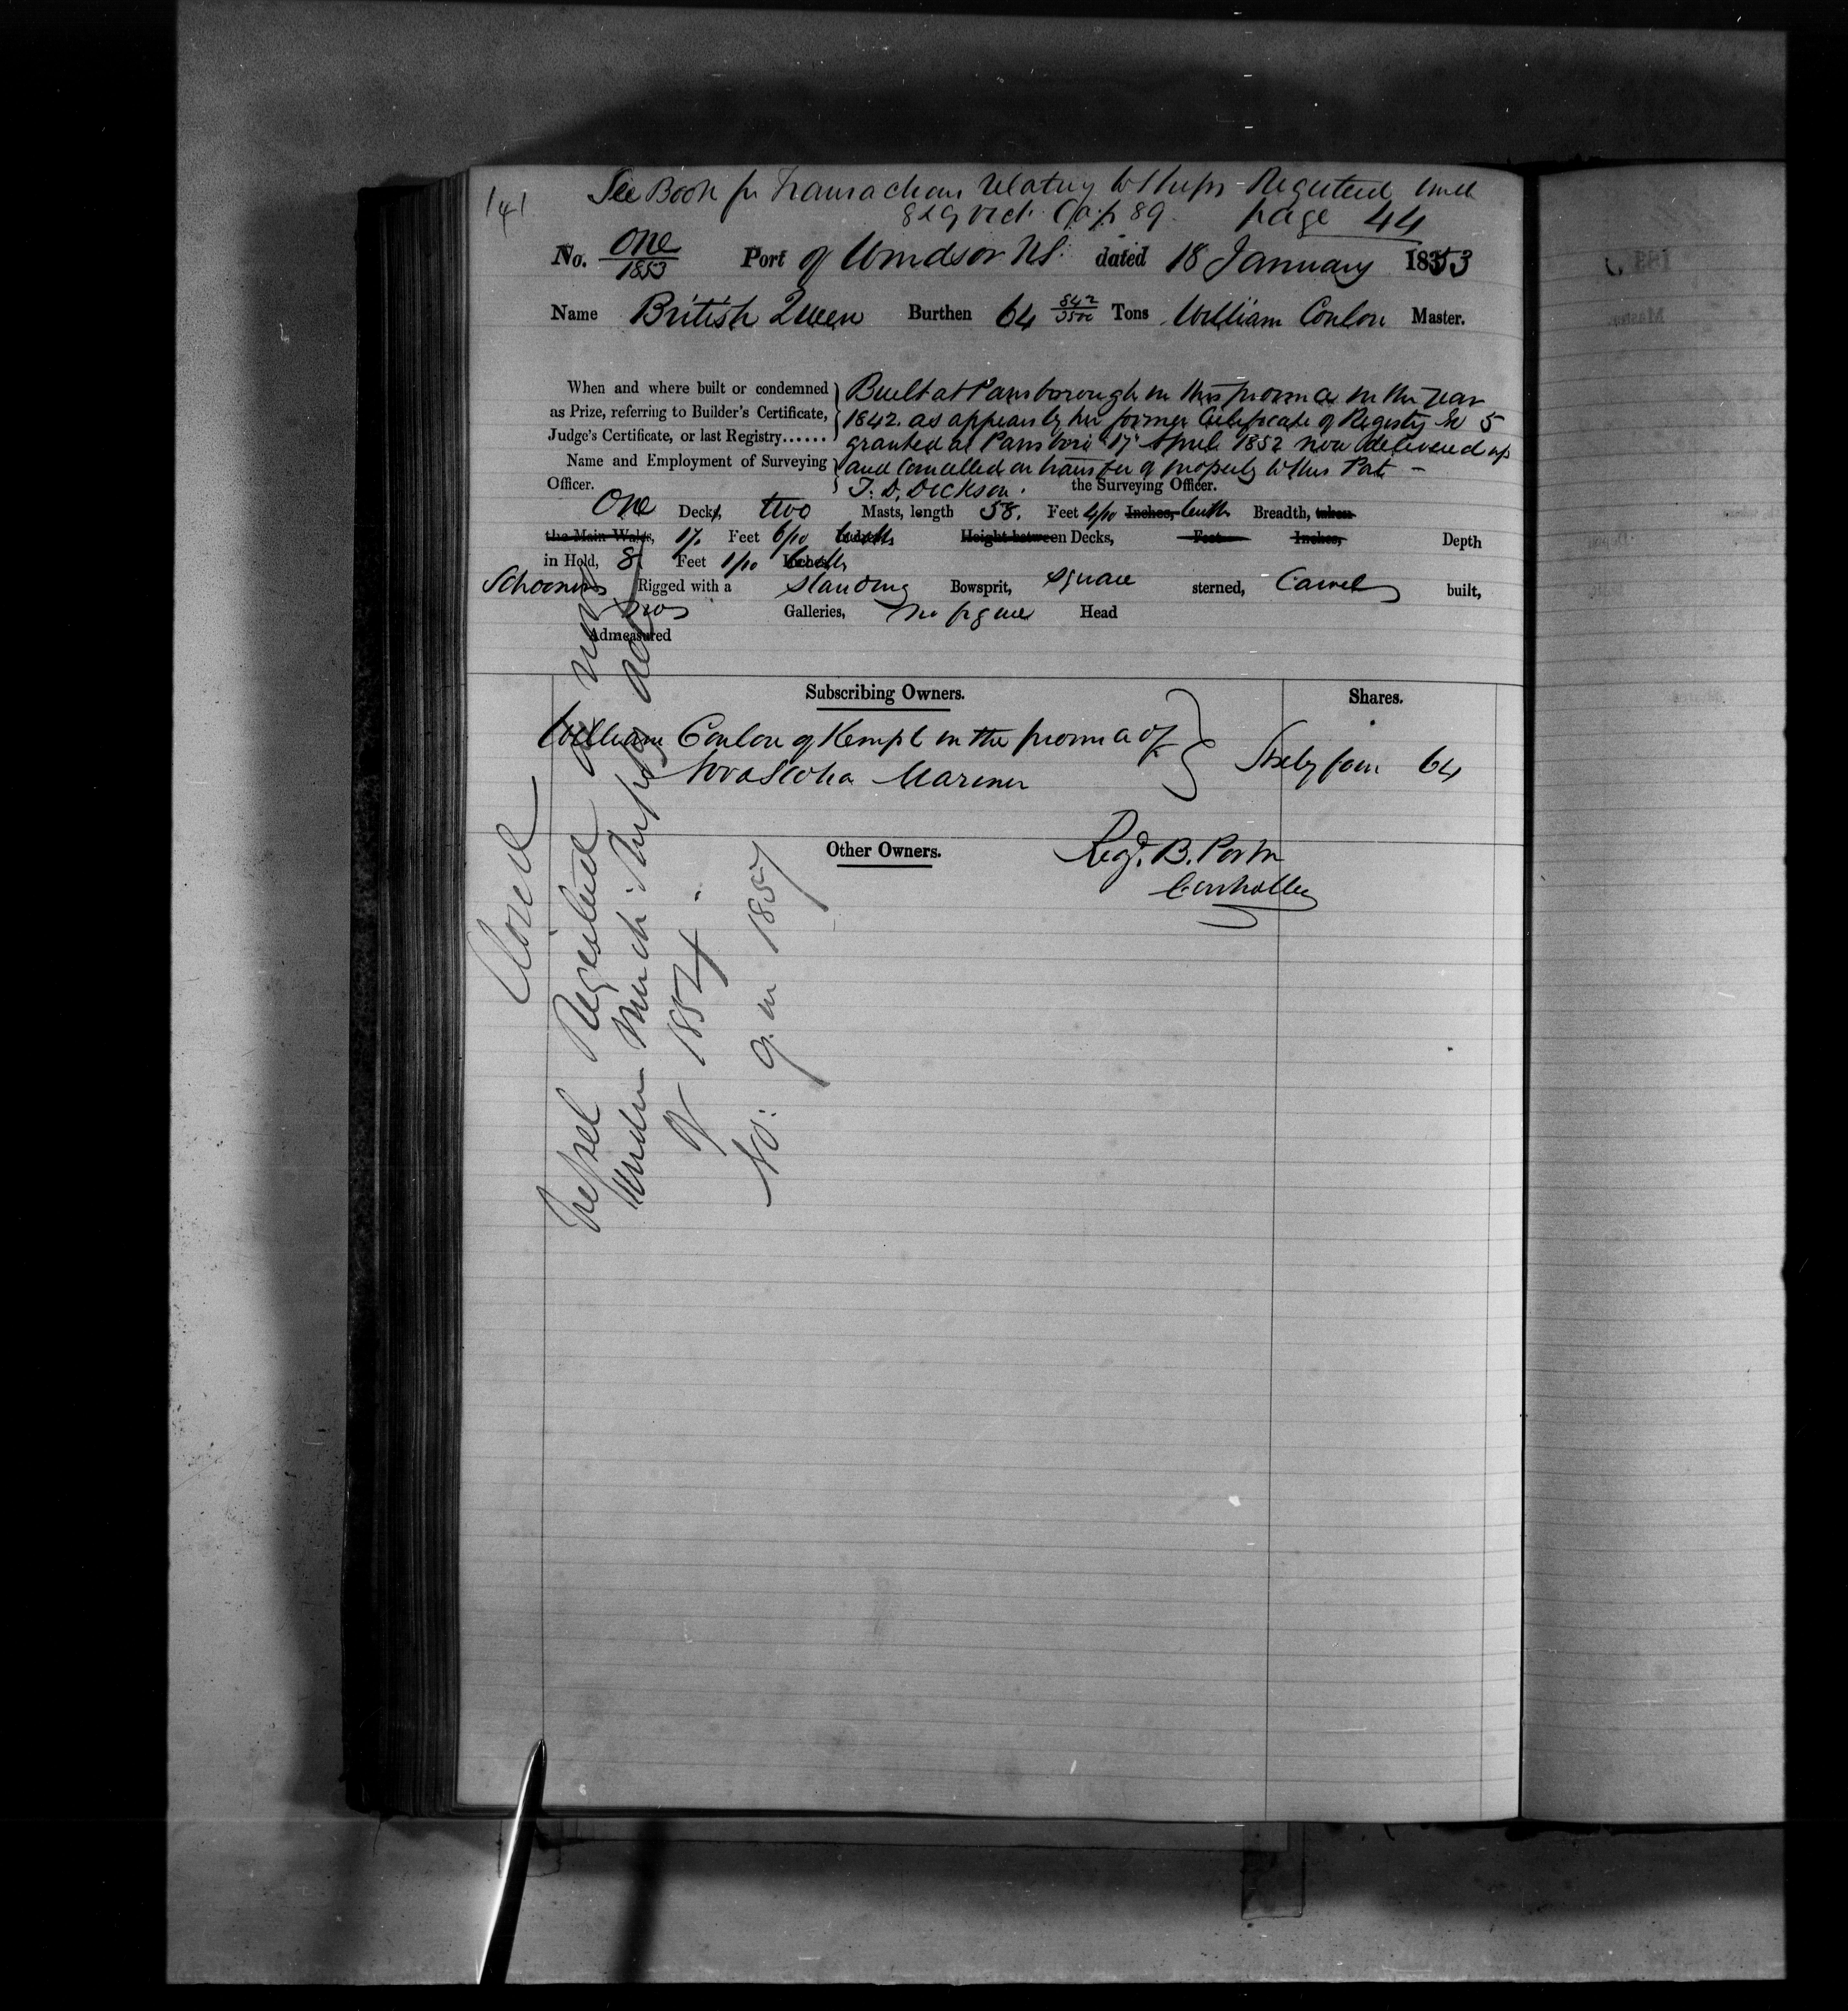 141
See Book for Transactions relating to Ships Registered under
8 & 9 Vict. Cap 89. page 44
No. One/1853 Port of Windsor NS. dated 18 January 1853
Name British Queen Burthen 64 842/3500 Tons William Conlon Master.
When and where built or condemned as Prize, referring to Builder's Certificate, Judge's Certificate, or last Registry......
Built at Parrsborough in this province in the year
1842. as appears by her former Certificate of Registry No 5
granted at Parrsboro 17 April 1852 now delivered up
and Cancelled on transfer of property to this Port -
Name and Employment of Surveying Officer.
T. D. Dickson. the Surveying Officer.
One Decks, two Masts, length 58. Feet 4/10 Inches, tenths Breadth, taken
the Main Wales, 17 Feet 6/10 tenths Height between Decks, Feet Inches, Depth
in Hold, 8 Feet 1/10 tenths
Schooner Rigged with a standing Bowsprit, square sterned, Carvel built,
no Galleries, no figure Head
Admeasured
Subscribing Owners. Shares.
William Conlon of Kempt in the province of
Nova Scotia Mariner Sixty four 64
Other Owners.
Regd. B. Porter
Controller
Closed
Vessel Registered a new
under Merch. Ship'g act
of 1854.
No: 9 in 1857